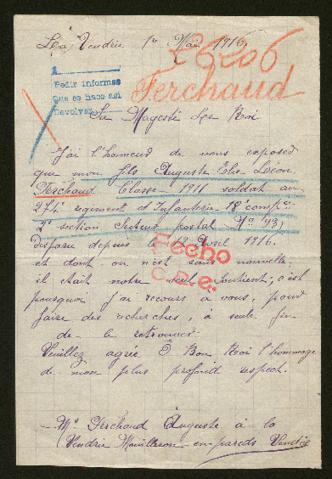 La Vendrie 1er Mai 1916
26206
Ferchaud
Pedir informes
Que se haco asi
Devolver
Sa Magesté le Roi
J'ai l'honneur de vous exposer
que mon fils Auguste Elie Léon
Ferchaud Classe 1911 soldat au
274e regiment d'Infanterie 18e compie
2e section Secteur postal No 43,
Disparu depuis le Avril 1916.
et dont on n'est sans nouvelle
il était notre seul soutient, c'est
pourquoi j'ai recours à vous, pour
faire des recherches, à seule fin
de le retrouver
Veuillez agréé Ô Bon Roi l'hommage
de mon plus profond respect.
Hecho
Mr Ferchaud Auguste à la
Vendrie Mouilleron-en-pareds Vendée